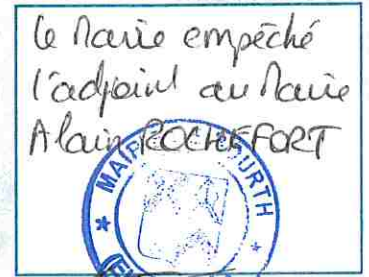 Le Maire empêché
l'adjoint au Maire
Alain ROCHEFORT
MAIRIE